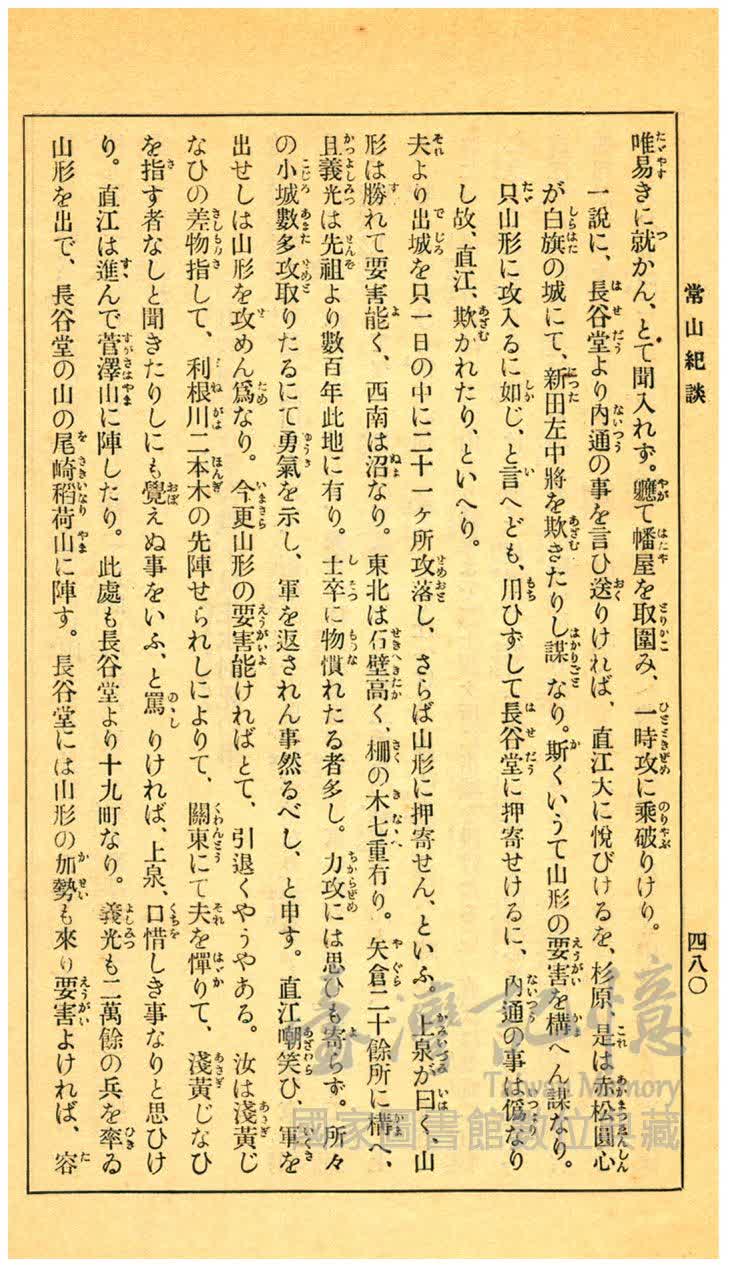 常山紀談
四八〇
唯易きに就かん、とて聞入れず。軈て幡屋を取圍み、一時攻に乘破りけり。
一說に、長谷堂より内通の事を言ひ送りければ、直江大に悅びけるを、杉原、是は赤松圓心
が白旗の城にて、新田左中將を欺きたりし謀なり。斯くいうて山形の要害を構へん謀なり。
只山形に攻入るに如じ、と言へども、用ひずして長谷堂に押寄せけるに、内通の事は僞なり
し故、直江、欺かれたり、といへり。
夫より出城を只一日の中に二十一ヶ所攻落し、さらば山形に押寄せん、といふ。上泉が曰く、山
形は勝れて要害能く、西南は沼なり。東北は石壁高く、柵の木七重有り。矢倉二十餘所に構へ、
且義光は先祖より數百年此地に有り。士卒に物慣れたる者多し。力攻には思ひも寄らず。所々
の小城數多攻取りたるにて勇氣を示し、軍を返されん事然るべし、と申す。直江嘲笑ひ、軍を
出せしは山形を攻めん爲なり。今更山形の要害能ければとて、引退くやうやある。汝は淺黃じ
なひの差物指して、利根川二本木の先陣せられしによりて、關東にて夫を憚りて、淺黃じなひ
を指す者なしと聞きたりしにも覺えぬ事をいふ、と罵りければ、上泉、口惜しき事なりと思ひけ
り。直江は進んで菅澤山に陣したり。此處も長谷堂より十九町なり。義光も二萬餘の兵を率ゐ
山形を出で、長谷堂の山の尾崎稻荷山に陣す。長谷堂には山形の加勢も來り要害よければ、容
臺灣記憶
Taiwan Memory
國家圖書館數位典藏